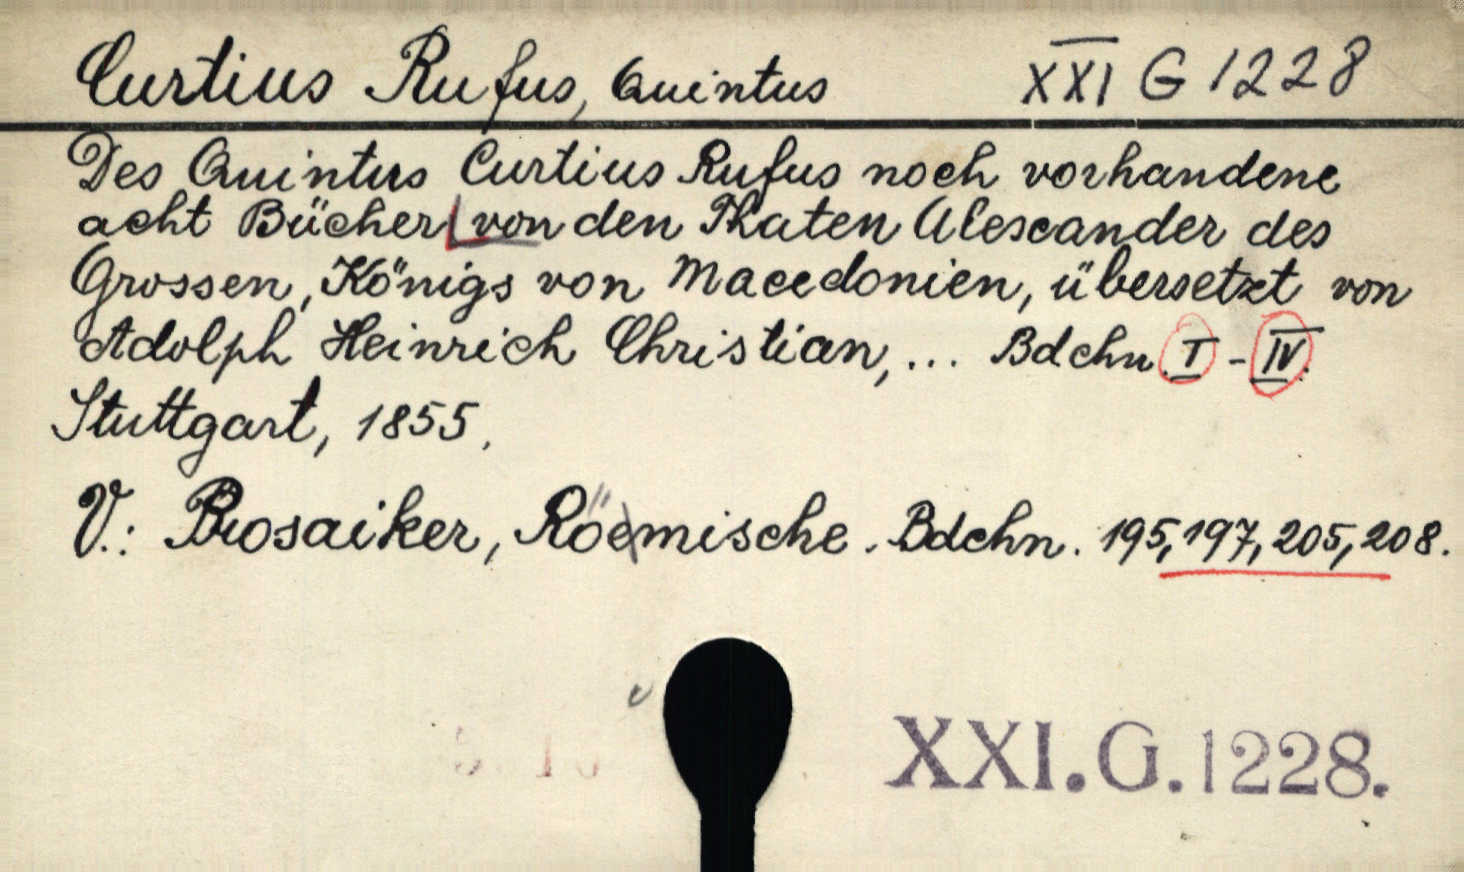 Curtius Rufus, Quintus XXI G 1228
Des Quintus Curtius Rufus noch vorhandene
acht Bücher von den Thaten Alexander des
Grossen, Königs von Macedonien, übersetzt von
Adolph Heinrich Christian, ... Bdchn. I - IV.
Stuttgart, 1855.
V.: Prosaiker, Röemische. Bdchn. 195, 197, 205, 208.
XXI.G.1228.